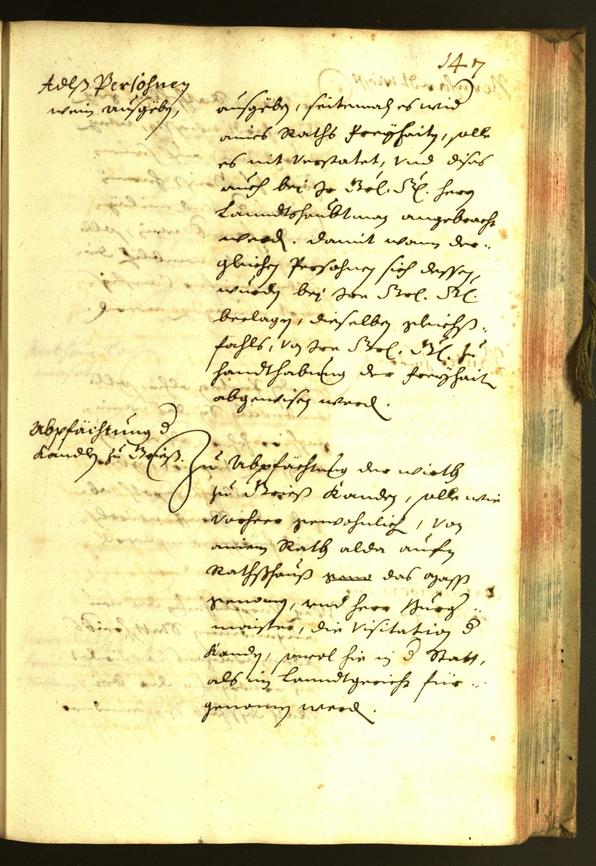 147
Adlß Persohnen
wein ausgeben,
ausgeben, seitemah es wid
aines Raths freyheit, solle
es nit verstatet, vnd dises
auch bei
herrn
Lanndtshaubtman angebracht
werd. damit wann der-
gleichen Persohnen sich dessen,
wurden bey
beclagen, dieselben gleichß-
fahls, von
zu
handthabung der freyheit
abgewisen werd.
Abpfächtung d
Kandln zu Grieß.
Zu Abpfächtung der wirth
zu Grieß Kanden, solle wie
vorheer gewohnlich, von
ainem Rath alda aufm
Rathßhauß das
genomen, vnd herr Burg-
maister, die Visitation d
Kanden, sowol hie in d Statt,
als im Lanndtgericht für-
genomen werd.